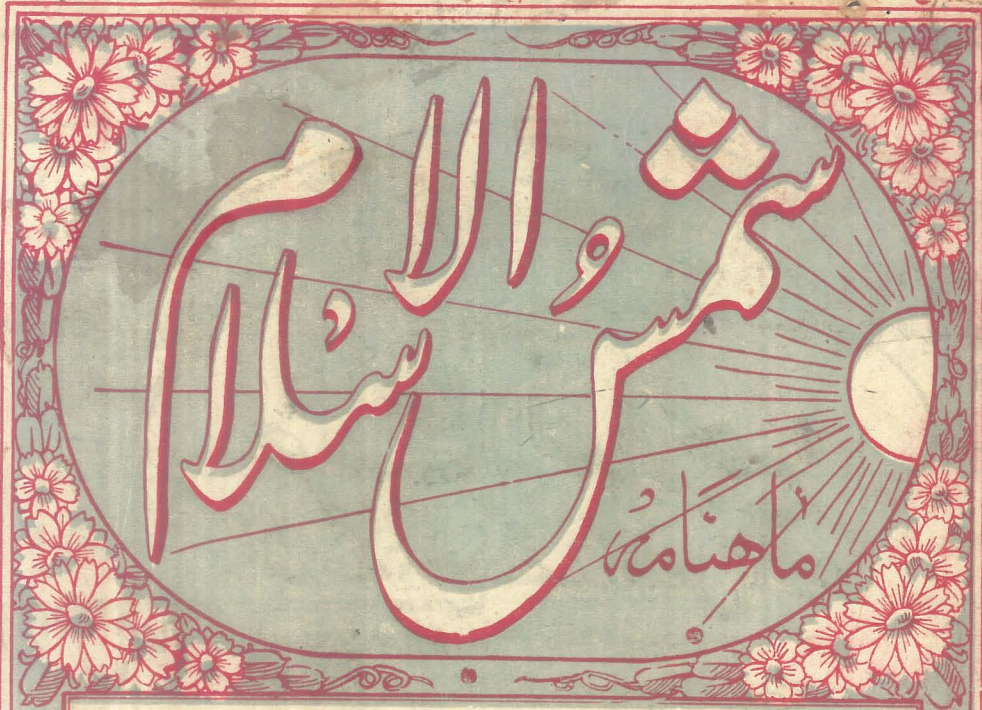 ماہنامہ
شمس الاسلام